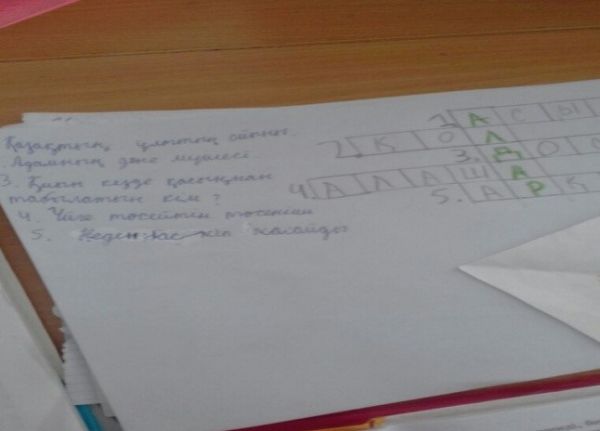 Қазақтың ұлттық ойыны.
Адамның дене мүшесі
3. Қиын кезде қасыңнан
табылатын кім?
4. Үйге төсейтін төсеніш
5. Неден жіп жасайды
1. А С Ы
2. Қ О Л
3. Д О С
4. А Л А Ш А
5. А Р Қ